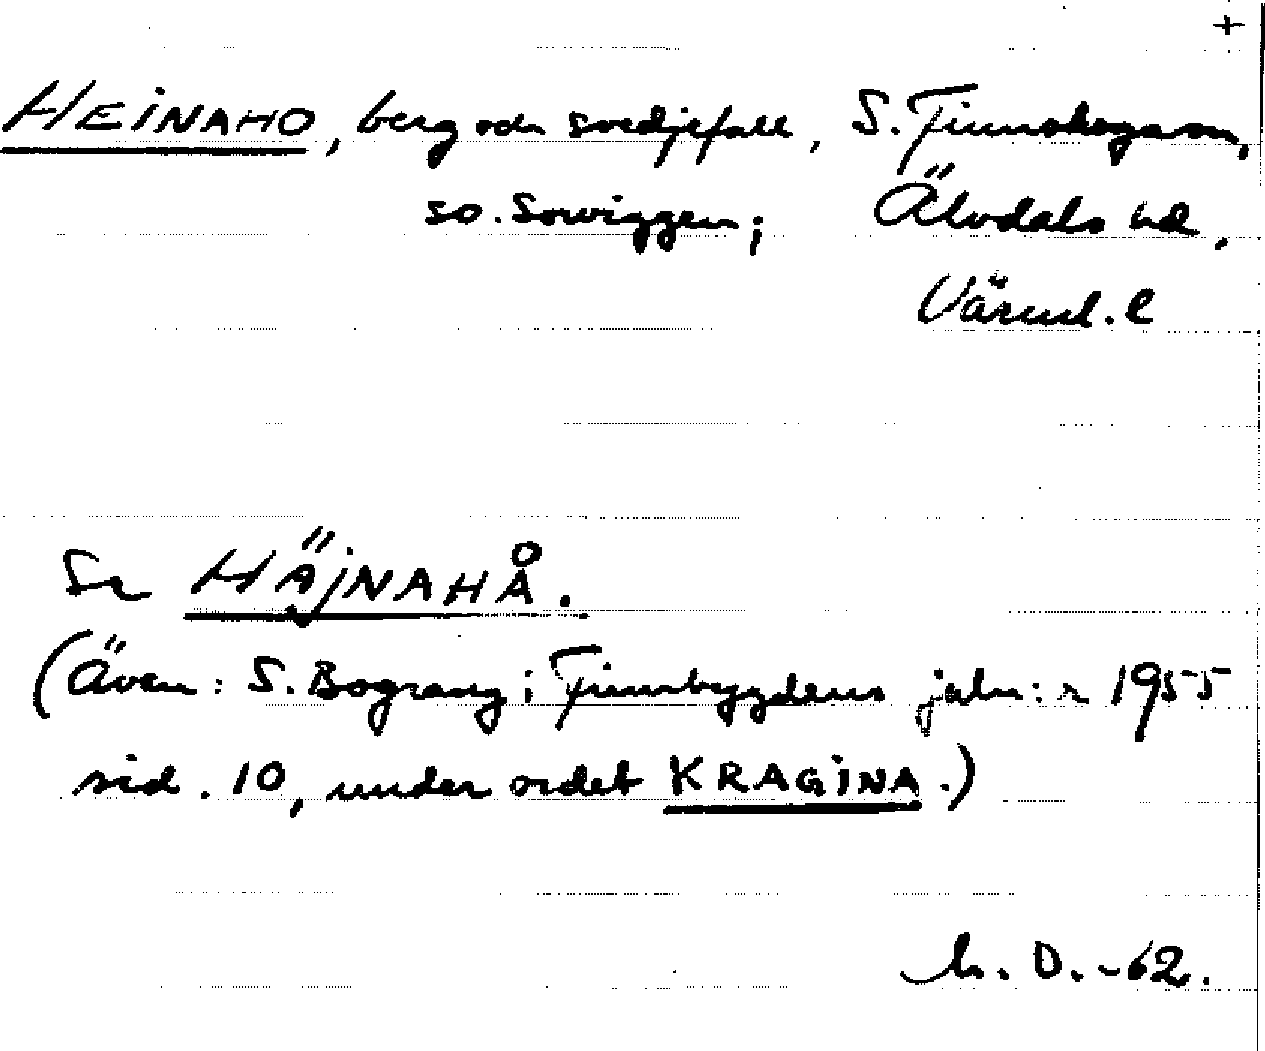 +
HEINAHO, berg och svedjefall, S. Finnskogarna,
so. Sorviggen; Älvdals hd,
Värml. l
Se HÄJNAHÅ.
(Även: S. Bograng i Finnbygdens jahr: r 1955
sid. 10, under ordet KRAGINA.)
D. -62.